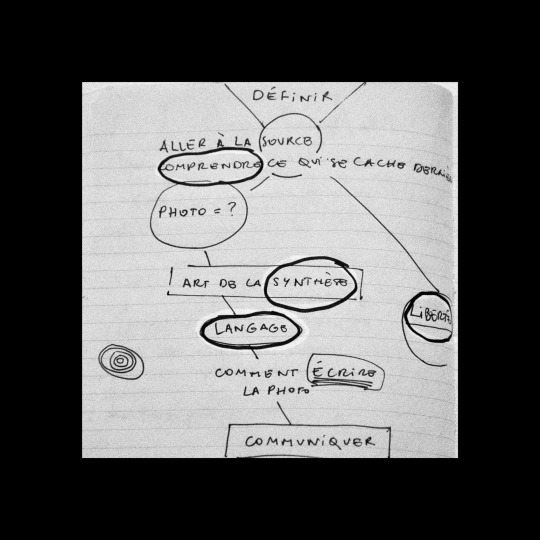 DÉFINIR
ALLER À LA SOURCE
COMPRENDRE CE QUI SE CACHE DERRIÈ
PHOTO = ?
ART DE LA SYNTHÈSE
LIBERTÉ
LANGAGE
COMMENT ÉCRIRE
LA PHOTO
COMMUNIQUER